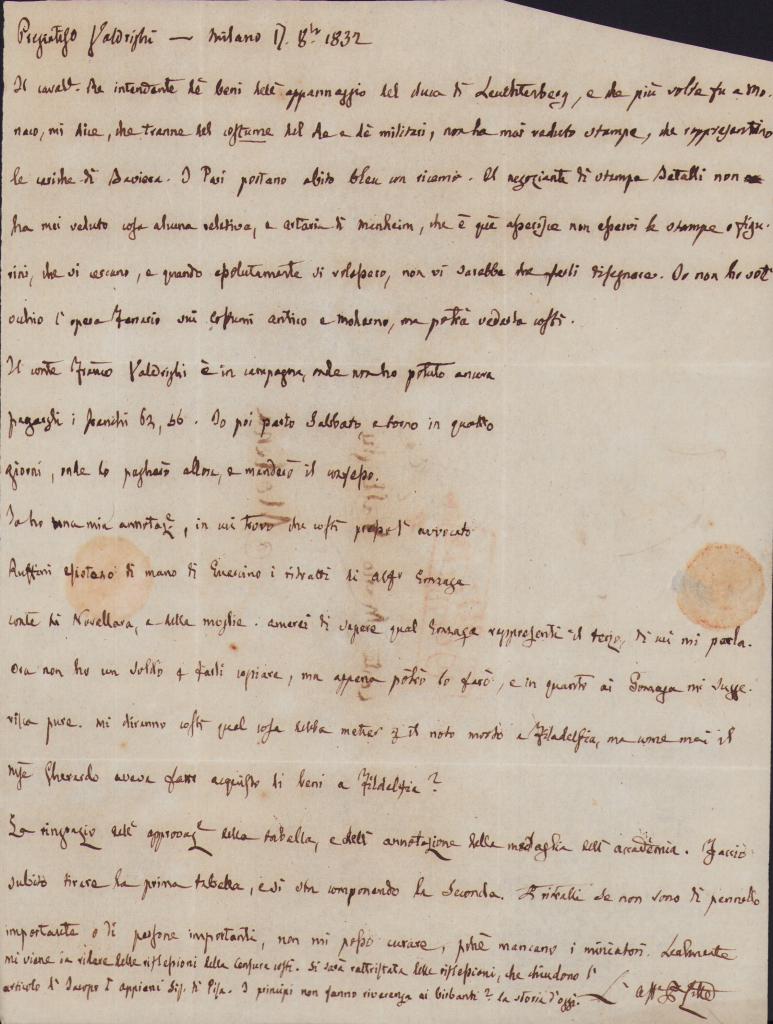 Pregiatis.o Valdrighi — Milano 17. 8bre 1832
Il caval.r Re intendente de beni dell'appannaggio del duca di Leuchtenberg, e che più volte fu a Mo-
naco, mi dice, che tranne del costume del Re e de militari, non ha mai veduto stampe, che rappresentino
le cariche di Baviera. I Pari portano abito bleu con ricamo. Il negoziante di stampe Betalli non
ha mai veduto cosa alcuna relativa, e Artaria di Manheim, che è quì asserisce non esservi le stampe o figu-
rini, che si cercano, e quando assolutamente si volessero, non vi sarebbe che farli disegnare. Io non ho sott'
occhio l'opera Ferrario sui costumi antico e moderno, ma potrà vederla costì.
Il conte Franco Valdrighi è in campagna, onde non ho potuto ancora
pagargli i franchi 62, 56. Io poi parto Sabbato e torno in quattro
giorni, onde lo pagherò allora, e manderò il confesso.
Io ho una mia annotaz.e, in cui trovo che costì presso l'avvocato
Ruffini esistano di mano di Guercino i ritratti di Alf.o Gonzaga
conte di Novellara, e della moglie. Amerei di sapere qual Gonzaga rappresenti il terzo, di cui mi parla.
Ora non ho un soldo p farli copiare, ma appena potrò lo farò, e in quanto ai Gonzaga mi sugge-
risca pure. Mi diranno costì qual cosa debba metter p il noto morto a Filadelfia, ma come mai il
Mse Gherardo aveva fatto acquisto di beni a Fildelfia?
La ringrazio dell'approvaz.e della tabella, e dell'annotazione della medaglia dell'accademia. Faccio
subito tirare la prima tabella, e si sta componendo la seconda. I ritratti se non sono di pennello
importante o di persone importanti, non mi posso curare, poiche mancano i miniatori. Realmente
mi viene da ridere delle riflessioni della Censura costì. Si sarà rattristata delle riflessioni, che chiudono l'
articolo di Jacopo I appiani Sig. di Pisa. I principi non fanno riverenza ai birbanti? la storia d'oggi.
L'aff. P. Litta